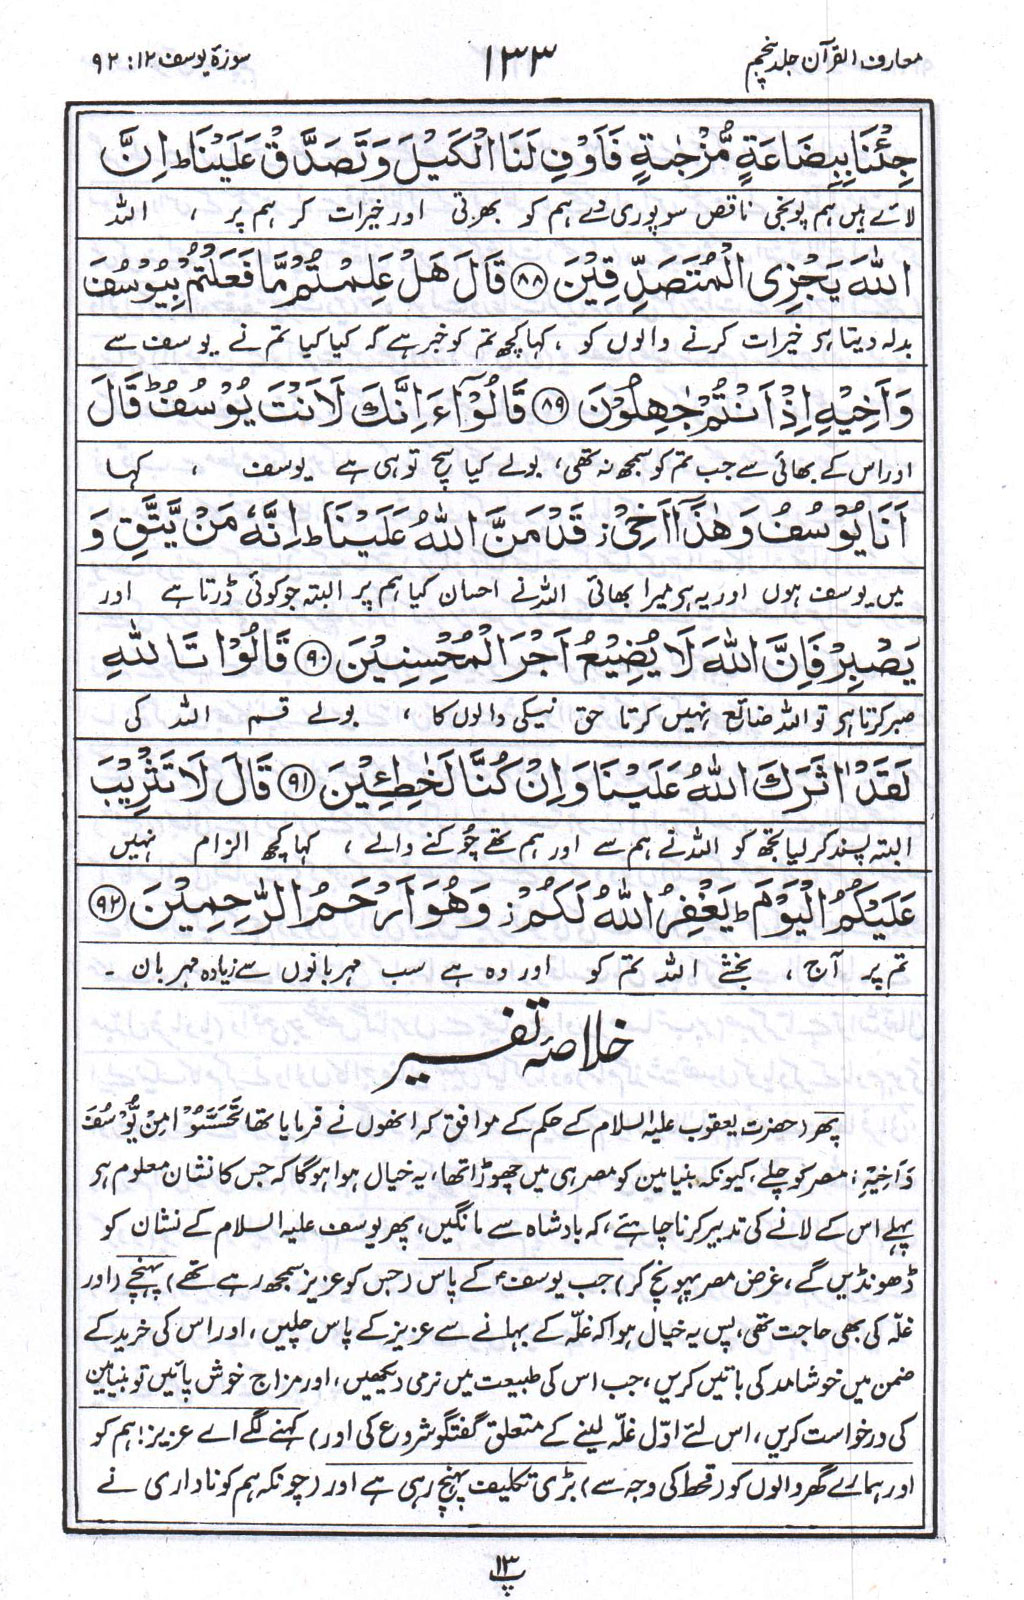 معارف القرآن جلد پنجم
۱۳۳
سورۃ یوسف ۱۲: ۹۲
جِئْنَا بِبِضَاعَةٍ مُّزْجٰىةٍ فَاَوْفِ لَنَا الْكَيْلَ وَتَصَدَّقْ عَلَيْنَا ؕ اِنَّ
لائے ہیں ہم پونجی ناقص سو پوری دے ہم کو بھرتی اور خیرات کر ہم پر ، اللہ
اللّٰهَ يَجْزِى الْمُتَصَدِّقِيْنَ ﴿۸۸﴾ قَالَ هَلْ عَلِمْتُمْ مَّا فَعَلْتُمْ بِيُوْسُفَ
بدلہ دیتا ہر خیرات کرنے والوں کو ، کہا کچھ تم کو خبر ہے کہ کیا کیا تم نے یوسف سے
وَاَخِيْهِ اِذْ اَنْتُمْ جٰهِلُوْنَ ﴿۸۹﴾ قَالُوْٓا ءَاِنَّكَ لَاَنْتَ يُوْسُفُ ؕ قَالَ
اور اس کے بھائی سے جب تم کو سمجھ نہ تھی، بولے کیا سچ تو ہی ہے یوسف ، کہا
اَنَا يُوْسُفُ وَهٰذَآ اَخِىْ ز قَدْ مَنَّ اللّٰهُ عَلَيْنَا ؕ اِنَّهٗ مَنْ يَّتَّقِ وَ
میں یوسف ہوں اور یہ ہر میرا بھائی اللہ نے احسان کیا ہم پر البتہ جو کوئی ڈرتا ہے اور
يَصْبِرْ فَاِنَّ اللّٰهَ لَا يُضِيْعُ اَجْرَ الْمُحْسِنِيْنَ ﴿۹۰﴾ قَالُوْا تَاللّٰهِ
صبر کرتا ہر تو اللہ ضائع نہیں کرتا حق نیکی والوں کا ، بولے قسم اللہ کی
لَقَدْ اٰثَرَكَ اللّٰهُ عَلَيْنَا وَاِنْ كُنَّا لَخٰطِئِيْنَ ﴿۹۱﴾ قَالَ لَا تَثْرِيْبَ
البتہ پسند کر لیا تجھ کو اللہ نے ہم سے اور ہم تھے چُوکنے والے ، کہا کچھ الزام نہیں
عَلَيْكُمُ الْيَوْمَ ؕ يَغْفِرُ اللّٰهُ لَكُمْ ز وَهُوَ اَرْحَمُ الرّٰحِمِيْنَ ﴿۹۲﴾
تم پر آج ، بخشے اللہ تم کو اور وہ ہے سب مہربانوں سے زیادہ مہربان ۔
خلاصۂ تفسیر
پھر (حضرت یعقوب علیہ السلام کے حکم کے موافق کہ انھوں نے فرمایا تھا تَحَسَّسُوْا مِنْ يُّوْسُفَ
وَاَخِيْهِ : مصر کو چلے، کیونکہ بنیامین کو مصر ہی میں چھوڑا تھا، یہ خیال ہوا ہوگا کہ جس کا نشان معلوم ہر
پہلے اس کے لانے کی تدبیر کرنا چاہئے، کہ بادشاہ سے مانگیں، پھر یوسف علیہ السلام کے نشان کو
ڈھونڈیں گے، غرض مصر پہونچ کر) جب یوسفؑ کے پاس (جس کو عزیز سمجھ رہے تھے) پہنچے (اور
غلّہ کی بھی حاجت تھی، پس یہ خیال ہوا کہ غلّہ کے بہانے سے عزیز کے پاس چلیں، اور اس کی خرید کے
ضمن میں خوشامد کی باتیں کریں، جب اس کی طبیعت میں نرمی دیکھیں، اور مزاج خوش پائیں تو بنیامین
کی درخواست کریں، اس لئے اوّل غلّہ لینے کے متعلق گفتگو شروع کی اور) کہنے لگے اے عزیز! ہم کو
اور ہمارے گھر والوں کو (قحط کی وجہ سے) بڑی تکلیف پہنچ رہی ہے اور (چونکہ ہم کو ناداری نے
پ ۱۳